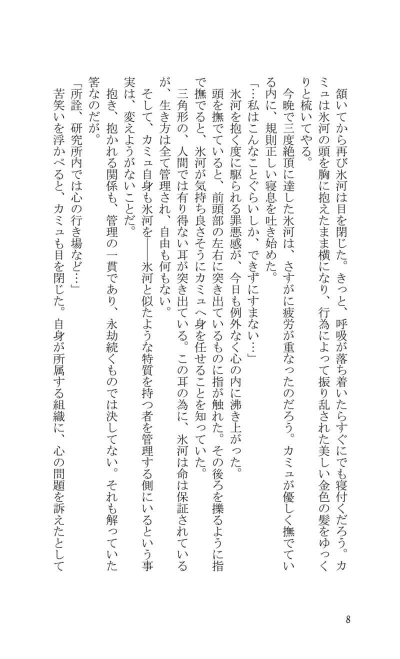 頷いてから再び氷河は目を閉じた。きっと、呼吸が落ち着いたらすぐにでも寝付くだろう。カ
ミュは氷河の頭を胸に抱えたまま横になり、行為によって振り乱された美しい金色の髪をゆっく
りと梳いてやる。
今晩で三度絶頂に達した氷河は、さすがに疲労が重なったのだろう。カミュが優しく撫でてい
る内に、規則正しい寝息を吐き始めた。
「…私はこんなことぐらいしか、できずにすまない…」
氷河を抱く度に駆られる罪悪感が、今日も例外なく心の内に沸き上がった。
頭を撫でていると、前頭部の左右に突き出ているものに指が触れた。その後ろを擽るように指
で撫でると、氷河が気持ち良さそうにカミュへ身を任せることを知っていた。
三角形の、人間では有り得ない耳が突き出ている。この耳の為に、氷河は命は保証されている
が、生き方は全て管理され、自由も何もない。
そして、カミュ自身も氷河を――氷河と似たような特質を持つ者を管理する側にいるという事
実は、変えようがないことだ。
抱き、抱かれる関係も、管理の一貫であり、永劫続くものでは決してない。それも解っていた
筈なのだが。
「所詮、研究所内では心の行き場など…」
苦笑いを浮かべると、カミュも目を閉じた。自身が所属する組織に、心の問題を訴えたとして
8